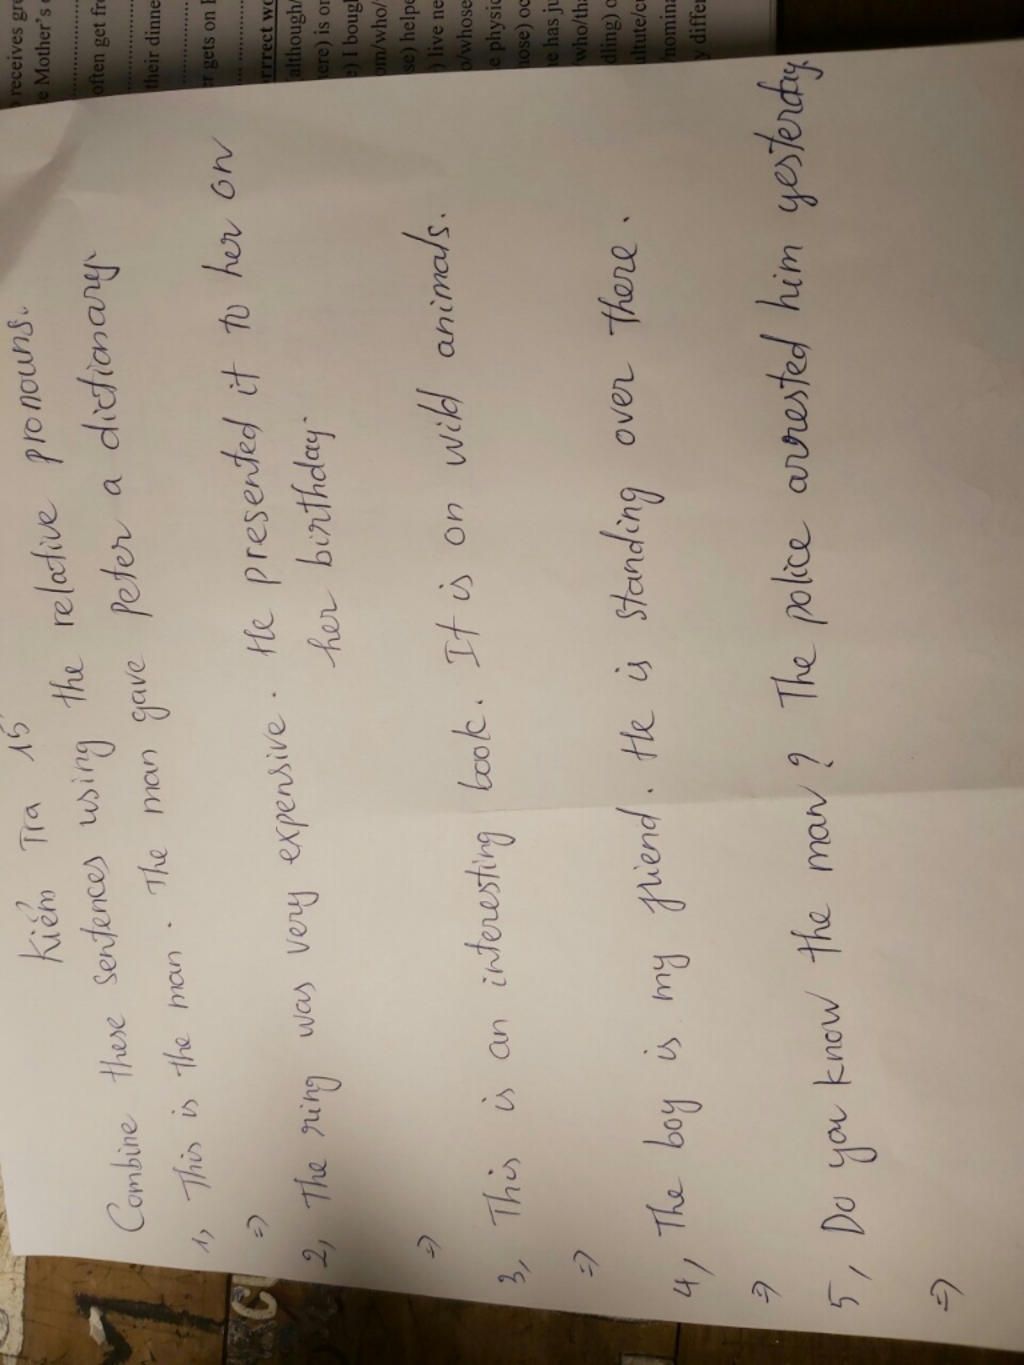 Kiểm Tra 15'
Combine these sentences using the relative pronouns.
1, This is the man. The man gave Peter a dictionary.
=>
2, The ring was very expensive. He presented it to her on
her birthday.
=>
3, This is an interesting book. It is on wild animals.
=>
4, The boy is my friend. He is standing over there.
=>
5, Do you know the man? The police arrested him yesterday.
=>
receives
Mother's
often get
their dinne
gets on
although/
is on
I bough
om/who/
helpe
live ne
o/whose
physic
has ju
who/tha
differ